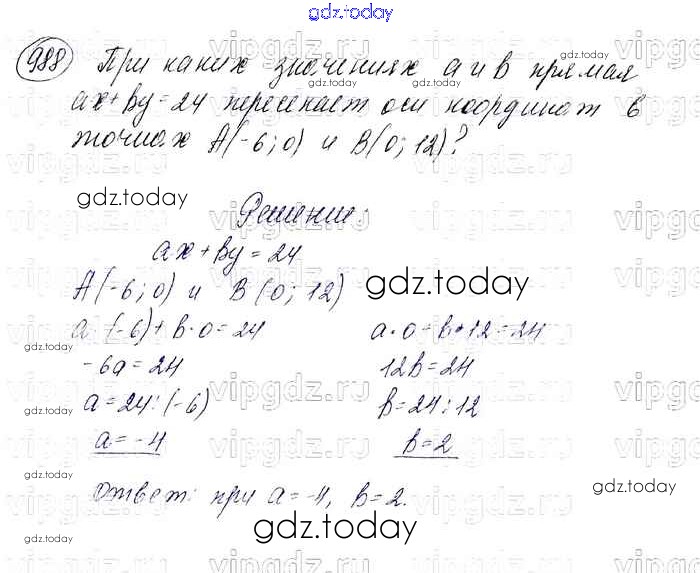 gdz.today
988 При каких значениях a и b прямая
ax + by = 24 пересекает оси координат в
точках A(-6; 0) и B(0; 12)?
gdz.today
Решение:
ax + by = 24
A(-6; 0) и B(0; 12)
gdz.today
a · (-6) + b · 0 = 24
a · 0 + b · 12 = 24
-6a = 24
12b = 24
a = 24 : (-6)
b = 24 : 12
a = -4
b = 2
Ответ: при a = -4, b = 2.
gdz.today
gdz.today
vipgdz.ru